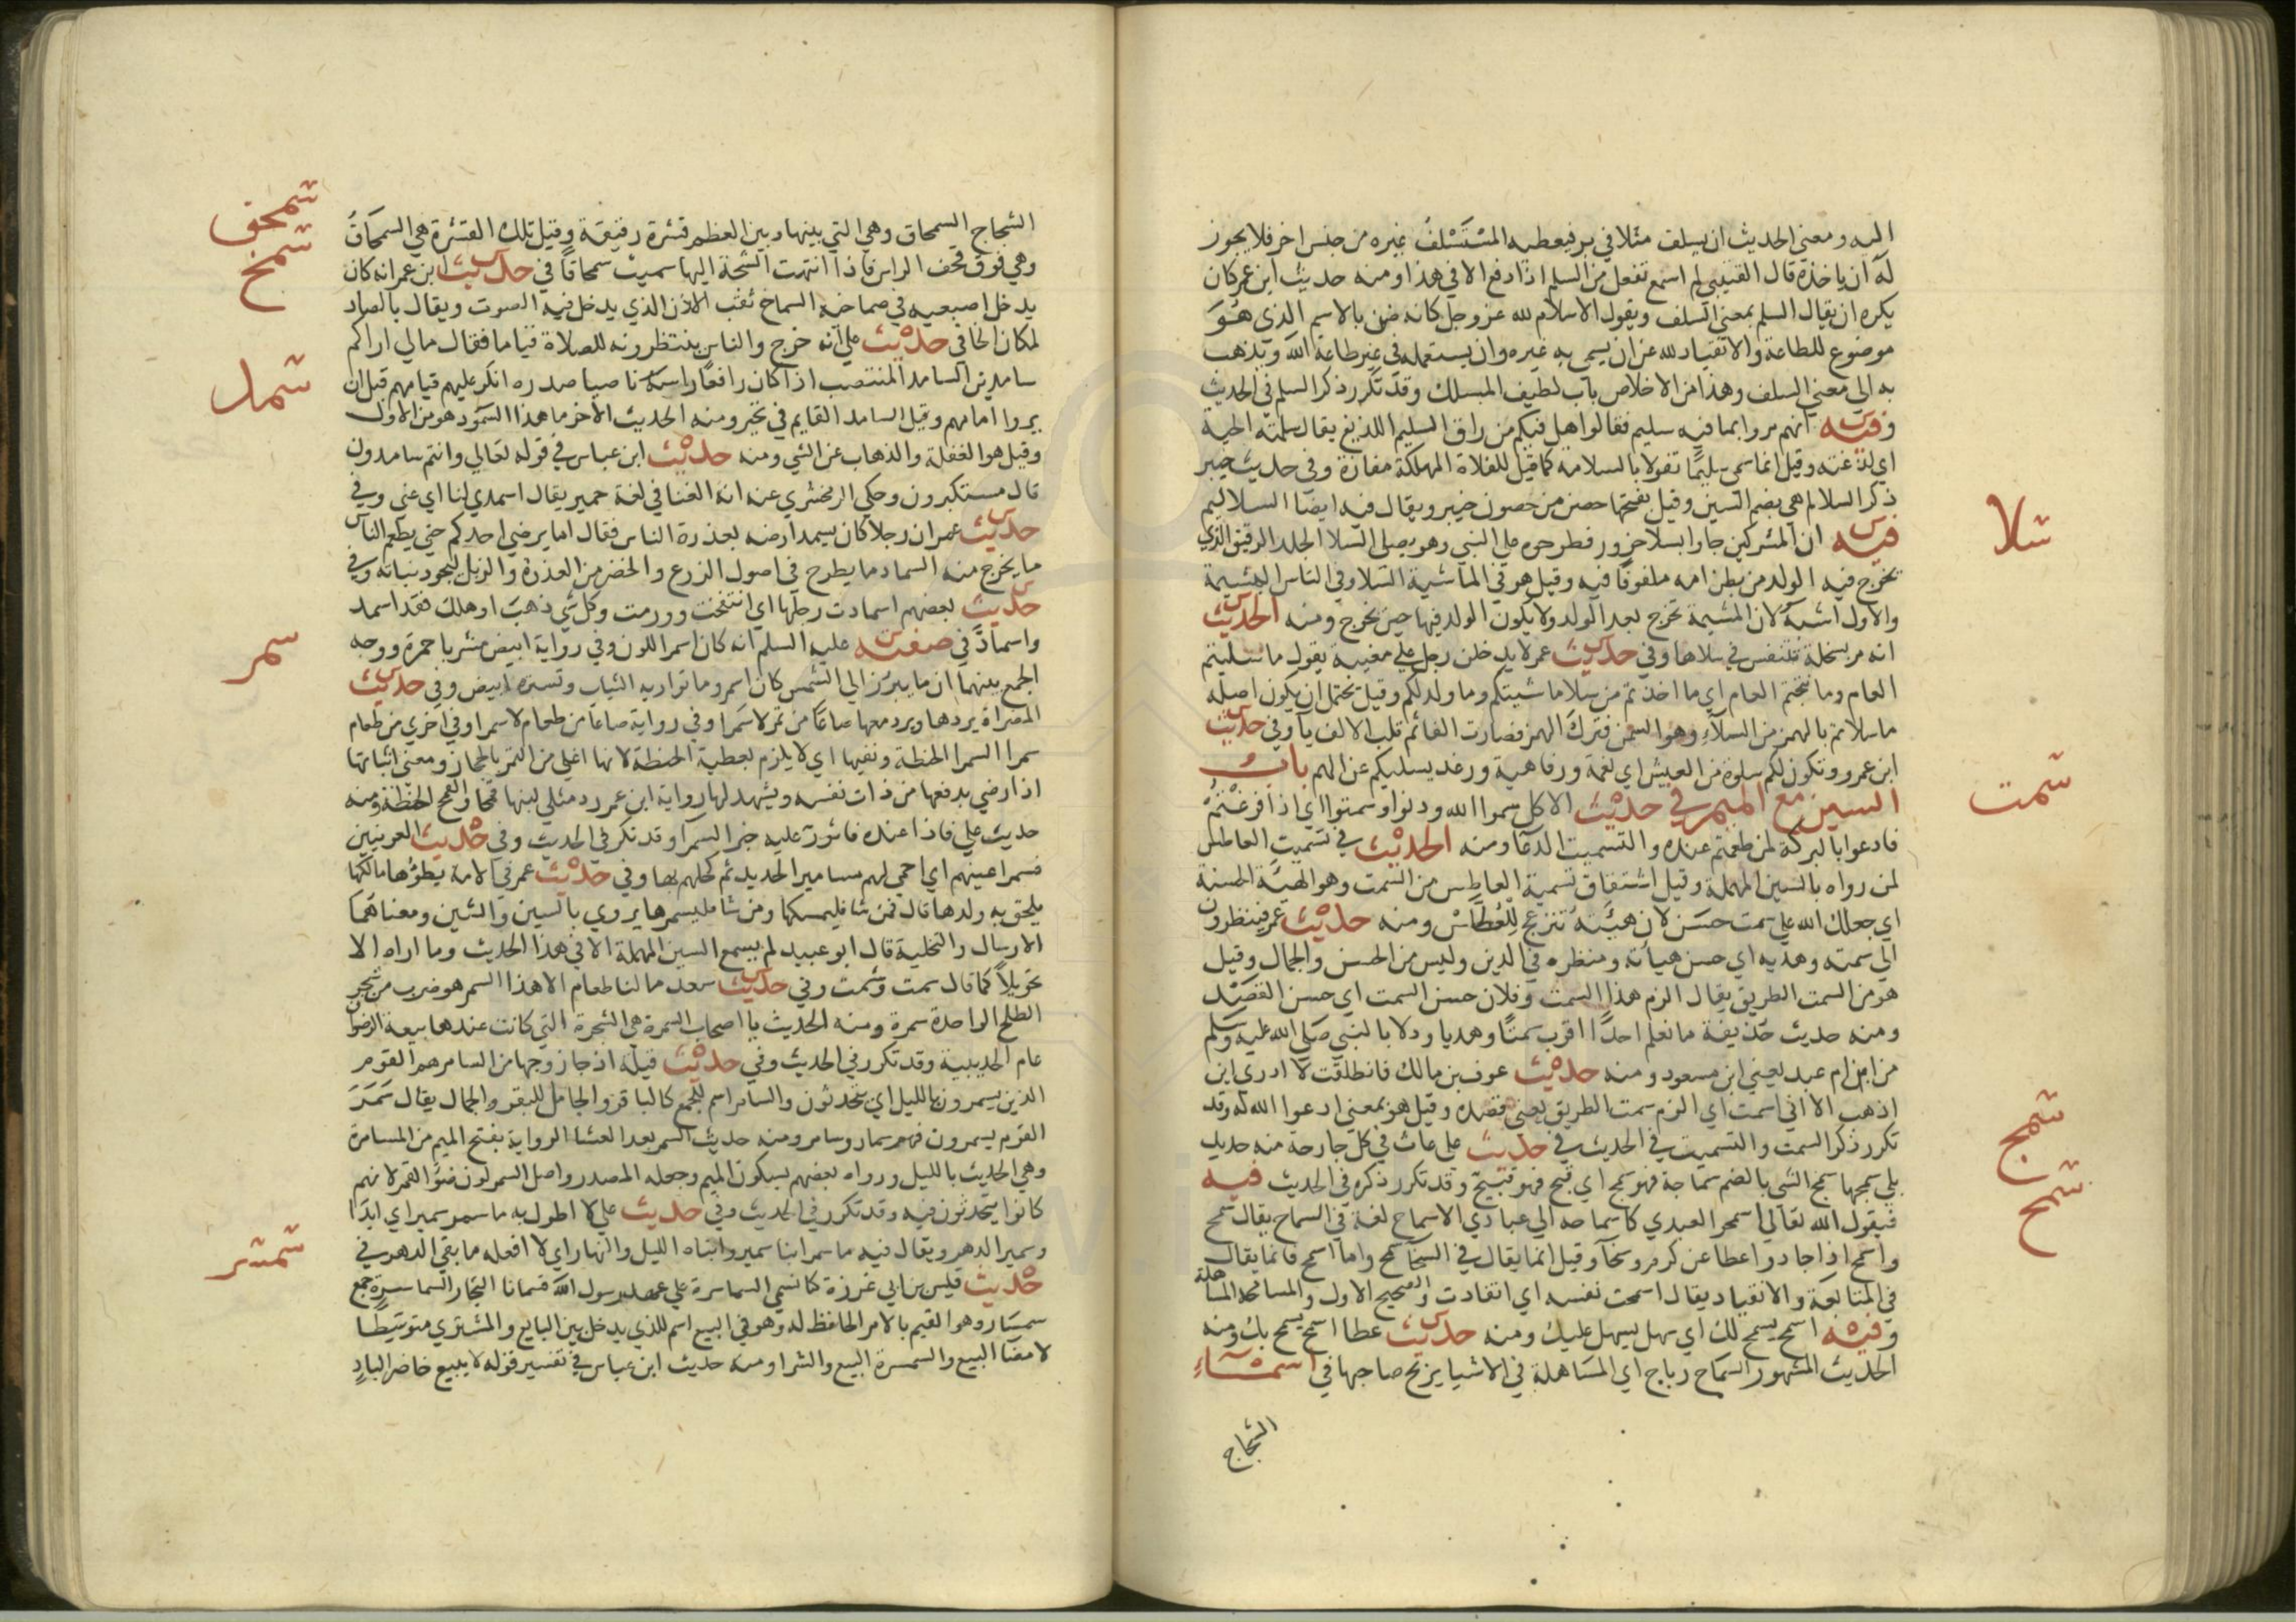 اليه ومعني الحديث ان يسلف مثلا في بر فيعطيه المُسْتَسْلِفُ غيره من جنس اخر فلا يجوز
له ان ياخذه قال القتيبي لم اسمع تفعل من السلم اذا دفع الا في هذا ومنه حديث ابن عمر كان
يكره ان يقال السلم بمعني السلف ويقول الاسلام لله عز وجل كانه ضن بالاسم الذي هُوَ
موضوع للطاعة والانقياد لله عن ان يسمي به غيره وان يستعمله في غير طاعة الله ويذهب
به الي معني السلف وهذا من الاخلاص باب لطيف المسلك وقد تكرر ذكر السلم في الحديث
وفيه انهم مروا بما فيه سليم فقالوا هل فيكم من راق السليم اللديغ يقال سلمته الحية
اي لدغته وقيل انما سمي سليمًا تفولا بالسلامة كما قيل للفلاة المهلكة مفازة وفي حديث خيبر
ذكر السلالم هي بضم السين وقيل بفتحها حصن من حصون خيبر ويقال فيه ايضا السلاليم
سلا
فيه ان المشركين جاوا بسلا جزور فطرحوه علي النبي وهو يصلي السلا الجلد الرقيق الذي
يخرج فيه الولد من بطن امه ملفوفًا فيه وقيل هو في الماشية السلا وفي الناس المشيمة
والاول اشبه لان المشيمة تخرج بعد الولد ولا يكون الولد فيها حين يخرج ومنه الحديث
انه مر بسخلة تتنفس في سلاها وفي حديث عمر لا يدخلن رجل علي مغيبة يقول ما سليتم
العام وما نتجتم العام اي ما اخذتم من سلا ماشيتكم وما ولد لكم وقيل يحتمل ان يكون اصله
ما سلاتم بالهمز من السلاء وهو السمن فترك الهمز فصارت الفا ثم قلب الالف يآ وفي حديث
ابن عمرو وتكون لكم سلوة من العيش اي نعمة ورفاهية ورغد يسليكم عن الهم باب
سمت
السين مع الميم في حديث الاكل سموا الله ودنوا وسمتوا اي اذا فرغْتمْ
فادعوا بالبركة لمن طعمتم عنده والتسميت الدعآ ومنه الحديث في تسميت العاطس
لمن رواه بالسين المهملة وقيل اشتقاق تسمية العاطس من السمت وهو الهيئة الحسنة
اي جعلك الله علي سمت حسن لان هيئته تنزعج للعُطاسْ ومنه حديث عمر فينظرون
الي سمته وهديه اي حسن هيأته ومنظره في الدين وليس من الحسن والجمال وقيل
هو من السمت الطريق يقال الزم هذا السمت وفلان حسن السمت اي حسن القصْد
ومنه حديث حذيفة ما نعلم احدًا اقرب سمتًا وهديا ودلا بالنبي صلي الله عليه وسلم
من ابن ام عبد يعني ابن مسعود ومنه حديث عوف بن مالك فانطلقت لا ادري اين
اذهب الا اني اسمت اي الزم سمت الطريق يعني قصده وقيل هو بمعني ادعوا الله له وقد
سمج
تكرر ذكر السمت والتسميت في الحديث في حديث علي عاث في كل جارحة منه جديد
بلي سمجها سمج الشي بالضم سماجة فهو سمج اي قبح فهو قبيح وقد تكرر ذكره في الحديث فيه
سمح
فيقول الله تعالي اسمحوا لعبدي كاسماحه الي عبادي الاسماح لغة في السماح يقال سمح
واسمح اذا جاد واعطا عن كرم وسخآ وقيل انما يقال في السخآ سمح واما اسمح فانما يقال
في المتابعة والانقياد يقال اسمحت نفسه اي انقادت والصحيح الاول والمسامحة المساهلة
وفيه اسمح يسمح لك اي سهل يسهل عليك ومنه حديث عطا اسمح يسمح بك ومنه
الحديث المشهور السماح رباح اي المساهلة في الاشيا يربح صاحبها في اسمآء
الشجاج
سمحق
الشجاج السمحاق وهي التي بينها وبين العظم قشرة رقيقة وقيل تلك القشرة هي السمحاقُ
سمخ
وهي فوق قحف الراس فاذا انتهت الشجة اليها سميت سمحاقًا في حديث ابن عمر انه كان
يدخل اصبعيه في صماخه السماخ ثقب الاذن الذي يدخل فيه الصوت ويقال بالصاد
سمد
لمكان الخا في حديث علي انه خرج والناس ينتظرونه للصلاة قياما فقال مالي اراكم
سامدين السامد المنتصب اذا كان رافعًا راسه ناصبا صدره انكر عليهم قيامهم قبل ان
يروا امامهم وقيل السامد القايم في تحير ومنه الحديث الاخر ما هذا السمود هو من الاول
وقيل هو الغفلة والذهاب عن الشي ومنه حديث ابن عباس في قوله تعالي وانتم سامدون
قال مستكبرون وحكي الزمخشري عنه انه الغنا في لغة حمير يقال اسمدي لنا اي غني وفي
حديث عمر ان رجلا كان يسمد ارضه بعذرة الناس فقال اما يرضي احدكم حتي يطعم الناس
ما يخرج منه السماد ما يطرح في اصول الزرع والخضر من العذرة والزبل ليجود نباته وفي
حديث بعضهم اسمادت رجلها اي انتفخت وورمت وكل شي ذهب او هلك فقد اسمد
سمر
واسمادّ في صفته عليه السلم انه كان اسمر اللون وفي رواية ابيض مشربا حمرة ووجه
الجمع بينهما ان ما يبرز الي الشمس كان اسمر وما تواريه الثياب وتستره ابيض وفي حديث
المصراة يردها ويرد معها صاعًا من تمر لا سمرا وفي رواية صاعا من طعام لا سمرا وفي اخري من طعام
سمرا السمرا الحنطة ونفيها اي لا يلزم بعطية الحنطة لانها اغلي من التمر بالحجاز ومعني اثباتها
اذا رضي بدفعها من ذات نفسه ويشهد لها رواية ابن عمر رد مثلي لبنها قمحا والقمح الحنطة ومنه
حديث علي فاذا عنده فاثور عليه خبز السمرا وقد تكرر في الحديث وفي حديث العرنيين
فسمر اعينهم اي احمي لهم مسامير الحديد ثم كحلهم بها وفي حديث عمر في الامة يطؤها مالكها
يلحق به ولدها قال فمن شا فليمسكها ومن شا فليسمرها يروي بالسين والشين ومعناهما
الارسال والتخلية قال ابو عبيد لم يسمع السين المهملة الا في هذا الحديث وما اراه الا
تحويلاً كما قال سمت وشمت وفي حديث سعد ما لنا طعام الا هذا السمر هو ضرب من شجر
الطلح الواحدة سمرة ومنه الحديث يا اصحاب السمرة هي الشجرة التي كانت عندها بيعة الرضوان
عام الحديبية وقد تكرر في الحديث وفي حديث قيلة اذ جاز وجها من السامر هم القوم
الذين يسمرون بالليل اي يتحدثون والسامر اسم للجمع كالباقر والجامل للبقر والجمال يقال سَمَرَ
القوم يسمرون فهم سمار وسامر ومنه حديث السمر بعد العشا الرواية بفتح الميم من المسامرة
وهي الحديث بالليل ورواه بعضهم بسكون الميم وجعله المصدر واصل السمر لون ضوء القمر لانهم
كانوا يتحدثون فيه وقد تكرر في الحديث وفي حديث علي لا اطول به ما سمر سمير اي ابدًا
سمسر
وسمير الدهر ويقال فيه ما سمر ابنا سمير وابناه الليل والنهار اي لا افعله ما بقي الدهر في
حديث قيس بن ابي غرزة كنا نسمي السماسرة علي عهد رسول الله فسمانا التجار السماسرة جمع
سمسار وهو القيم بالامر الحافظ له وهو في البيع اسم للذي يدخل بين البايع والمشتري متوسّطًا
لامضا البيع والسمسرة البيع والشرا ومنه حديث ابن عباس في تفسير قوله لا يبيع حاضر لبادٍ